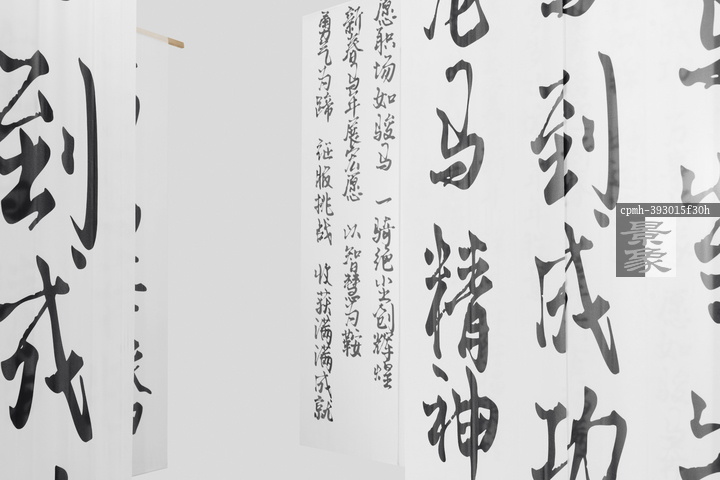 到成功
马精神
愿职场如骏马 一骑绝尘创辉煌
新春马年展宏愿 以智慧为鞍
勇气为蹄 征服挑战 收获满满成就
到成
cpmh-393015f30h
景象